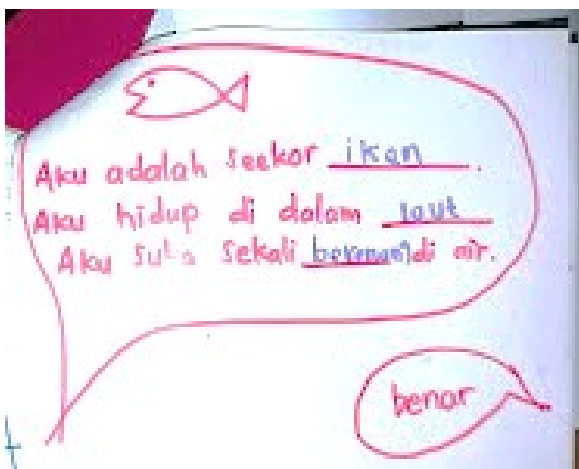 Aku adalah seekor ikan.
Aku hidup di dalam laut
Aku suka sekali berenang di air.
benar